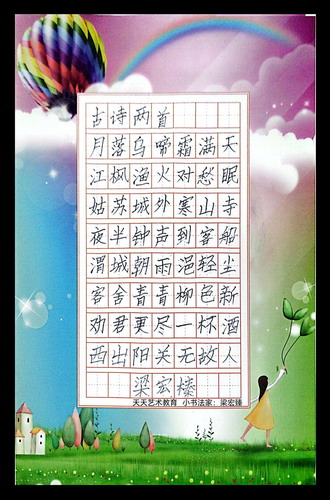 古诗两首
月落乌啼霜满天
江枫渔火对愁眠
姑苏城外寒山寺
夜半钟声到客船
渭城朝雨浥轻尘
客舍青青柳色新
劝君更尽一杯酒
西出阳关无故人
梁宏榛
天天艺术教育 小书法家：梁宏榛